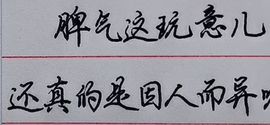 脾气这玩意儿
还真的是因人而异